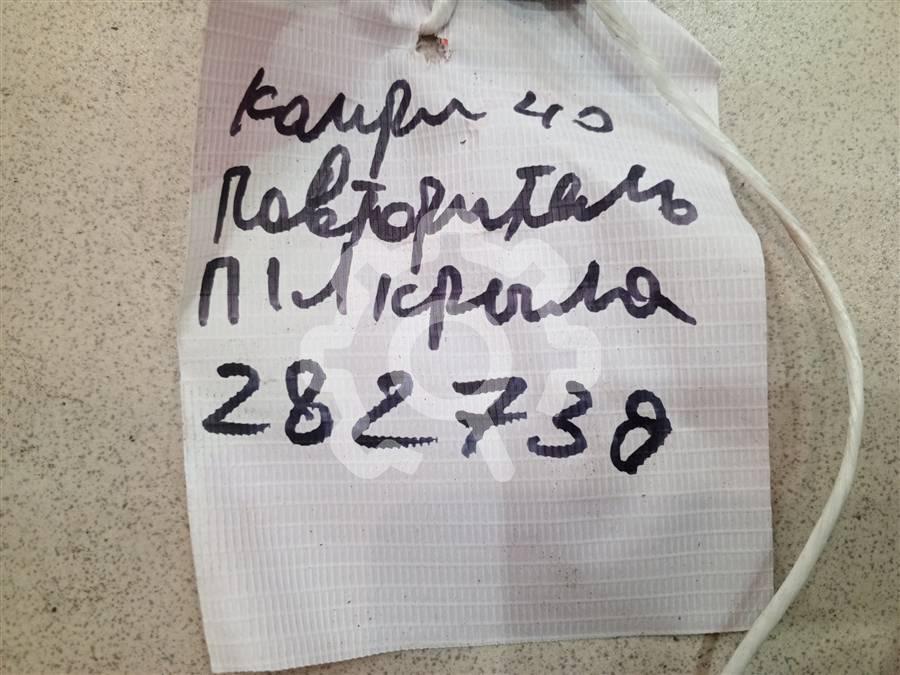 Камри 40
Повторитель
П/Л крыла
282738